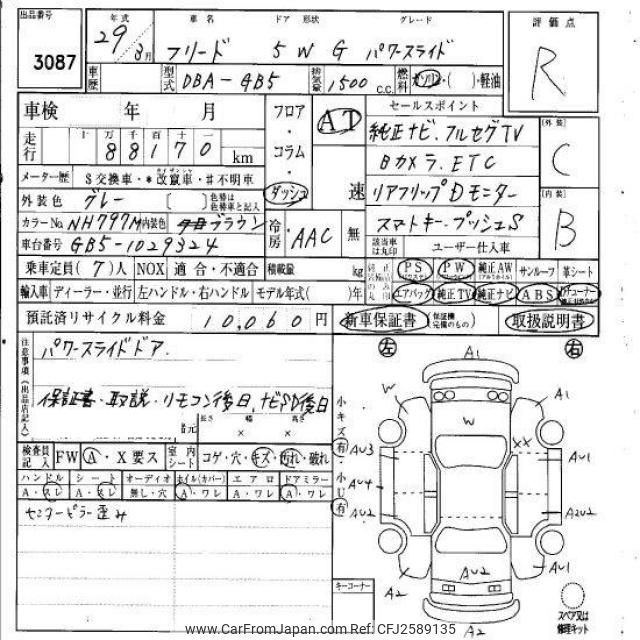 出品番号 年式 車名 ドア 形状 グレード 評価点
3087 29/3月 フリード 5 W G パワースライド R
車歴 型式 DBA-GB5 排気量 1500 c.c. 燃料 ガソリン・( )・軽油
車検 年 月 フロア・コラム・ダッシュ AT 速 セールスポイント [外装] C
走行 十万千百十一 88170 km 純正ナビ.フルセグTV
メーター歴 $交換車・*改竄車・#不明車 Bカメラ.ETC
外装色 グレー [ ] 色替は色替車名と記入 リアフリップDモニター [内装] B
カラーNo. NH797M 内装色 ブラウン 冷房 AAC 無 スマートキー.プッシュS
車台番号 GB5-1029324 該当車は丸印 ユーザー仕入車
乗車定員(7)人 NOX 適合・不適合 積載量 kg 純正品の丸印 PS PW 純正AW サンルーフ 革シート
輸入車 ディーラー・並行 左ハンドル・右ハンドル モデル年式( )年 エアバッグ 純正TV 純正ナビ ABS
預託済リサイクル料金 10,060円 新車保証書(保証継完備のもの) 取扱説明書
注意事項(出品店記入) パワースライドドア.
保証書・取説・リモコン後日,ナビSD後日
長さ 幅 高さ
× ×
検査員記入 FW A・X要ス 室内シート コゲ・穴・キズ・汚れ・破れ
ハンドル シート オーディオ ホイル(カバー) エアロ ドアミラー
A・スレ A・スレ 無し・穴 A・ワレ A・ワレ A・ワレ
センターピラー歪み
小キズ有・小U有
左 右
A1
W A1
W
XX
AU3 AU1
AU4
AU2 A2U2
AU2
A2 AU1
A2
キーコーナー
スペア又は修理キット
www.CarFromJapan.com Ref: CFJ2589135